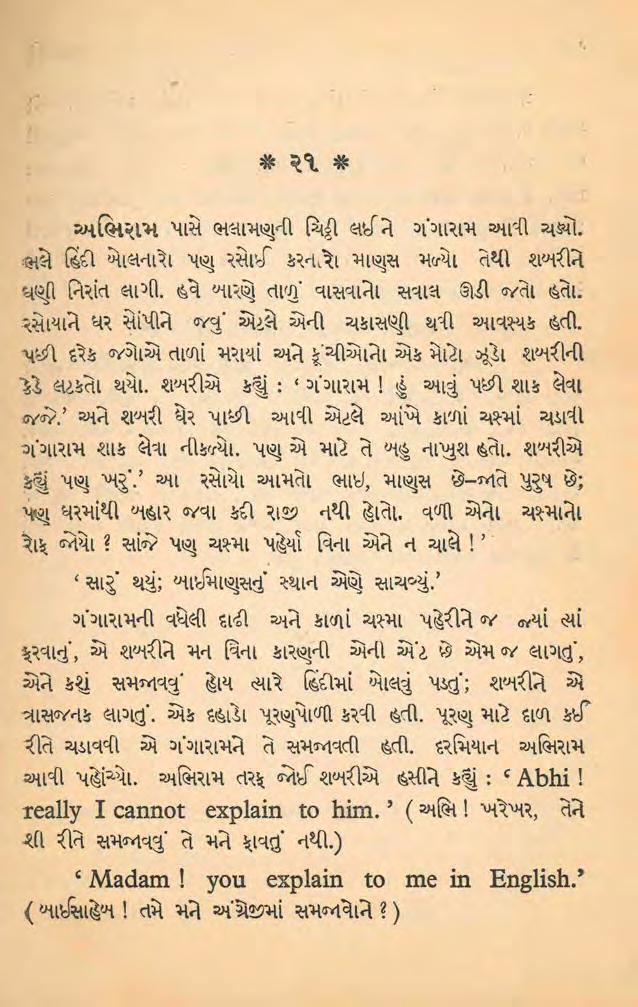 * ૨૧ *
અભિરામ પાસે ભલામણની ચિઠ્ઠી લઈ ને ગંગારામ આવી ચડ્યો.
ભલે હિંદી બોલનારો પણ રસોઈ કરનારો માણસ મળ્યો તેથી શબરીને
ઘણી નિરાંત લાગી. હવે બારણે તાળું વાસવાનો સવાલ ઊડી જતો હતો.
રસોયાને ઘર સોંપીને જવું એટલે એની ચકાસણી થવી આવશ્યક હતી.
પછી દરેક જગોએ તાળાં મરાયાં અને કૂંચીઓનો એક મોટો ઝૂડો શબરીની
કેડે લટકતો થયો. શબરીએ કહ્યું : ‘ ગંગારામ ! હું આવું પછી શાક લેવા
જજે.’ અને શબરી ઘેર પાછી આવી એટલે આંખે કાળાં ચશ્માં ચડાવી
ગંગારામ શાક લેવા નીકળ્યો. પણ એ માટે તે બહુ નાખુશ હતો. શબરીએ
કહ્યું પણ ખરું.’ આ રસોયો આમતો ભાઇ, માણસ છે–જાતે પુરુષ છે;
પણ ઘરમાંથી બહાર જવા કદી રાજી નથી હોતો. વળી એનો ચશ્માનો
રોફ જોયો ? સાંજે પણ ચશ્મા પહેર્યા વિના એને ન ચાલે ! ’
‘ સારું થયું; બાઈમાણસનું સ્થાન એણે સાચવ્યું.’
ગંગારામની વધેલી દાઢી અને કાળાં ચશ્મા પહેરીને જ જ્યાં ત્યાં
ફરવાનું, એ શબરીને મન વિના કારણની એની એંટ છે એમ જ લાગતું,
એને કશું સમજાવવું હોય ત્યારે હિંદીમાં બોલવું પડતું; શબરીને એ
ત્રાસજનક લાગતું. એક દહાડો પૂરણપોળી કરવી હતી. પૂરણ માટે દાળ કઈ
રીતે ચડાવવી એ ગંગારામને તે સમજાવતી હતી. દરમિયાન અભિરામ
આવી પહોંચ્યો. અભિરામ તરફ જોઈ શબરીએ હસીને કહ્યું : ‘ Abhi !
really I cannot explain to him. ’ ( અભિ ! ખરેખર, તેને
શી રીતે સમજાવવું તે મને ફાવતું નથી.)
‘ Madam ! you explain to me in English.’
( બાઈસાહેબ ! તમે મને અંગ્રેજીમાં સમજાવોને ? )